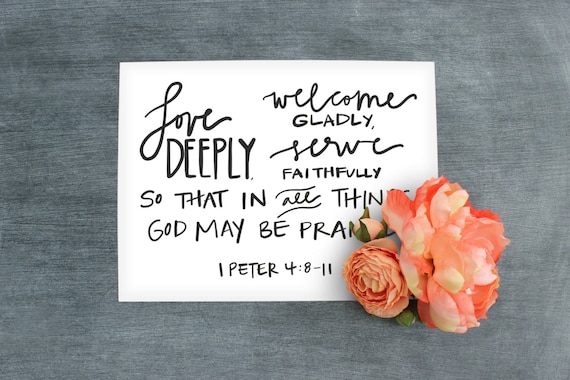 love
DEEPLY,
welcome
GLADLY,
serve
FAITHFULLY
SO THAT IN all THINGS
GOD MAY BE
1 PETER 4:8-11